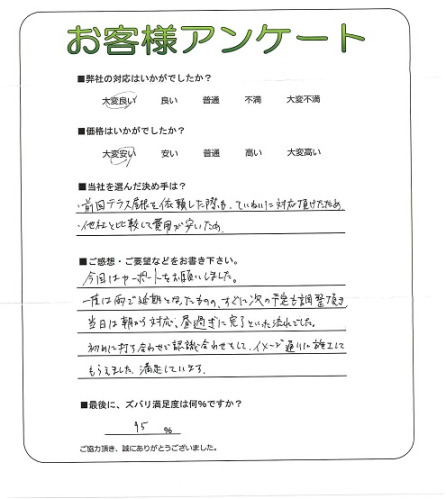 お客様アンケート
■弊社の対応はいかがでしたか？
大変良い 良い 普通 不満 大変不満
■価格はいかがでしたか？
大変安い 安い 普通 高い 大変高い
■当社を選んだ決め手は？
・前回テラス屋根を依頼した際も、ていねいに対応頂けたため
・他社と比較して費用が安いため
■ご感想・ご要望などをお書き下さい。
今回はカーポートをお願いしました。
一度は雨で延期となったものの、すぐに次の予定も調整頂き
当日は朝から対応、昼過ぎに完了といった流れでした。
初めに打ち合わせで認識合わせをして、イメージ通りに施工して
もらえました。満足しています。
■最後に、ズバリ満足度は何%ですか？
95 %
ご協力頂き、誠にありがとうございました。